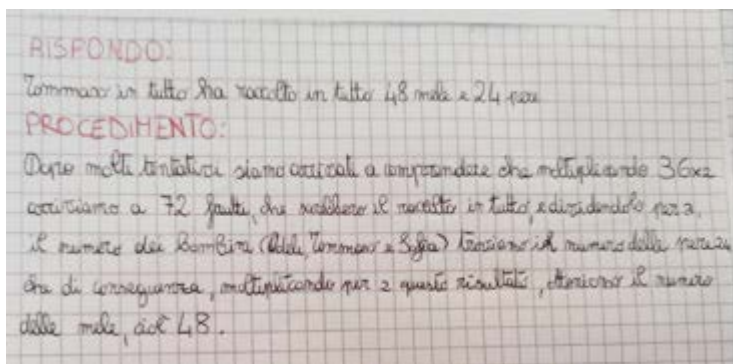 RISPONDO:
Tommaso in tutto ha raccolto in tutto 48 mele e 24 pere
PROCEDIMENTO:
Dopo molti tentativi siamo arrivati a comprendere che moltiplicando 36x2
arriviamo a 72 frutti, che sarebbero il raccolto in tutto, e dividendolo per 3,
il numero dei bambini (Adele, Tommaso e Sofia) troviamo il numero delle pere 24
che di conseguenza, moltiplicando per 2 questo risultato, otteniamo il numero
delle mele, cioè 48.